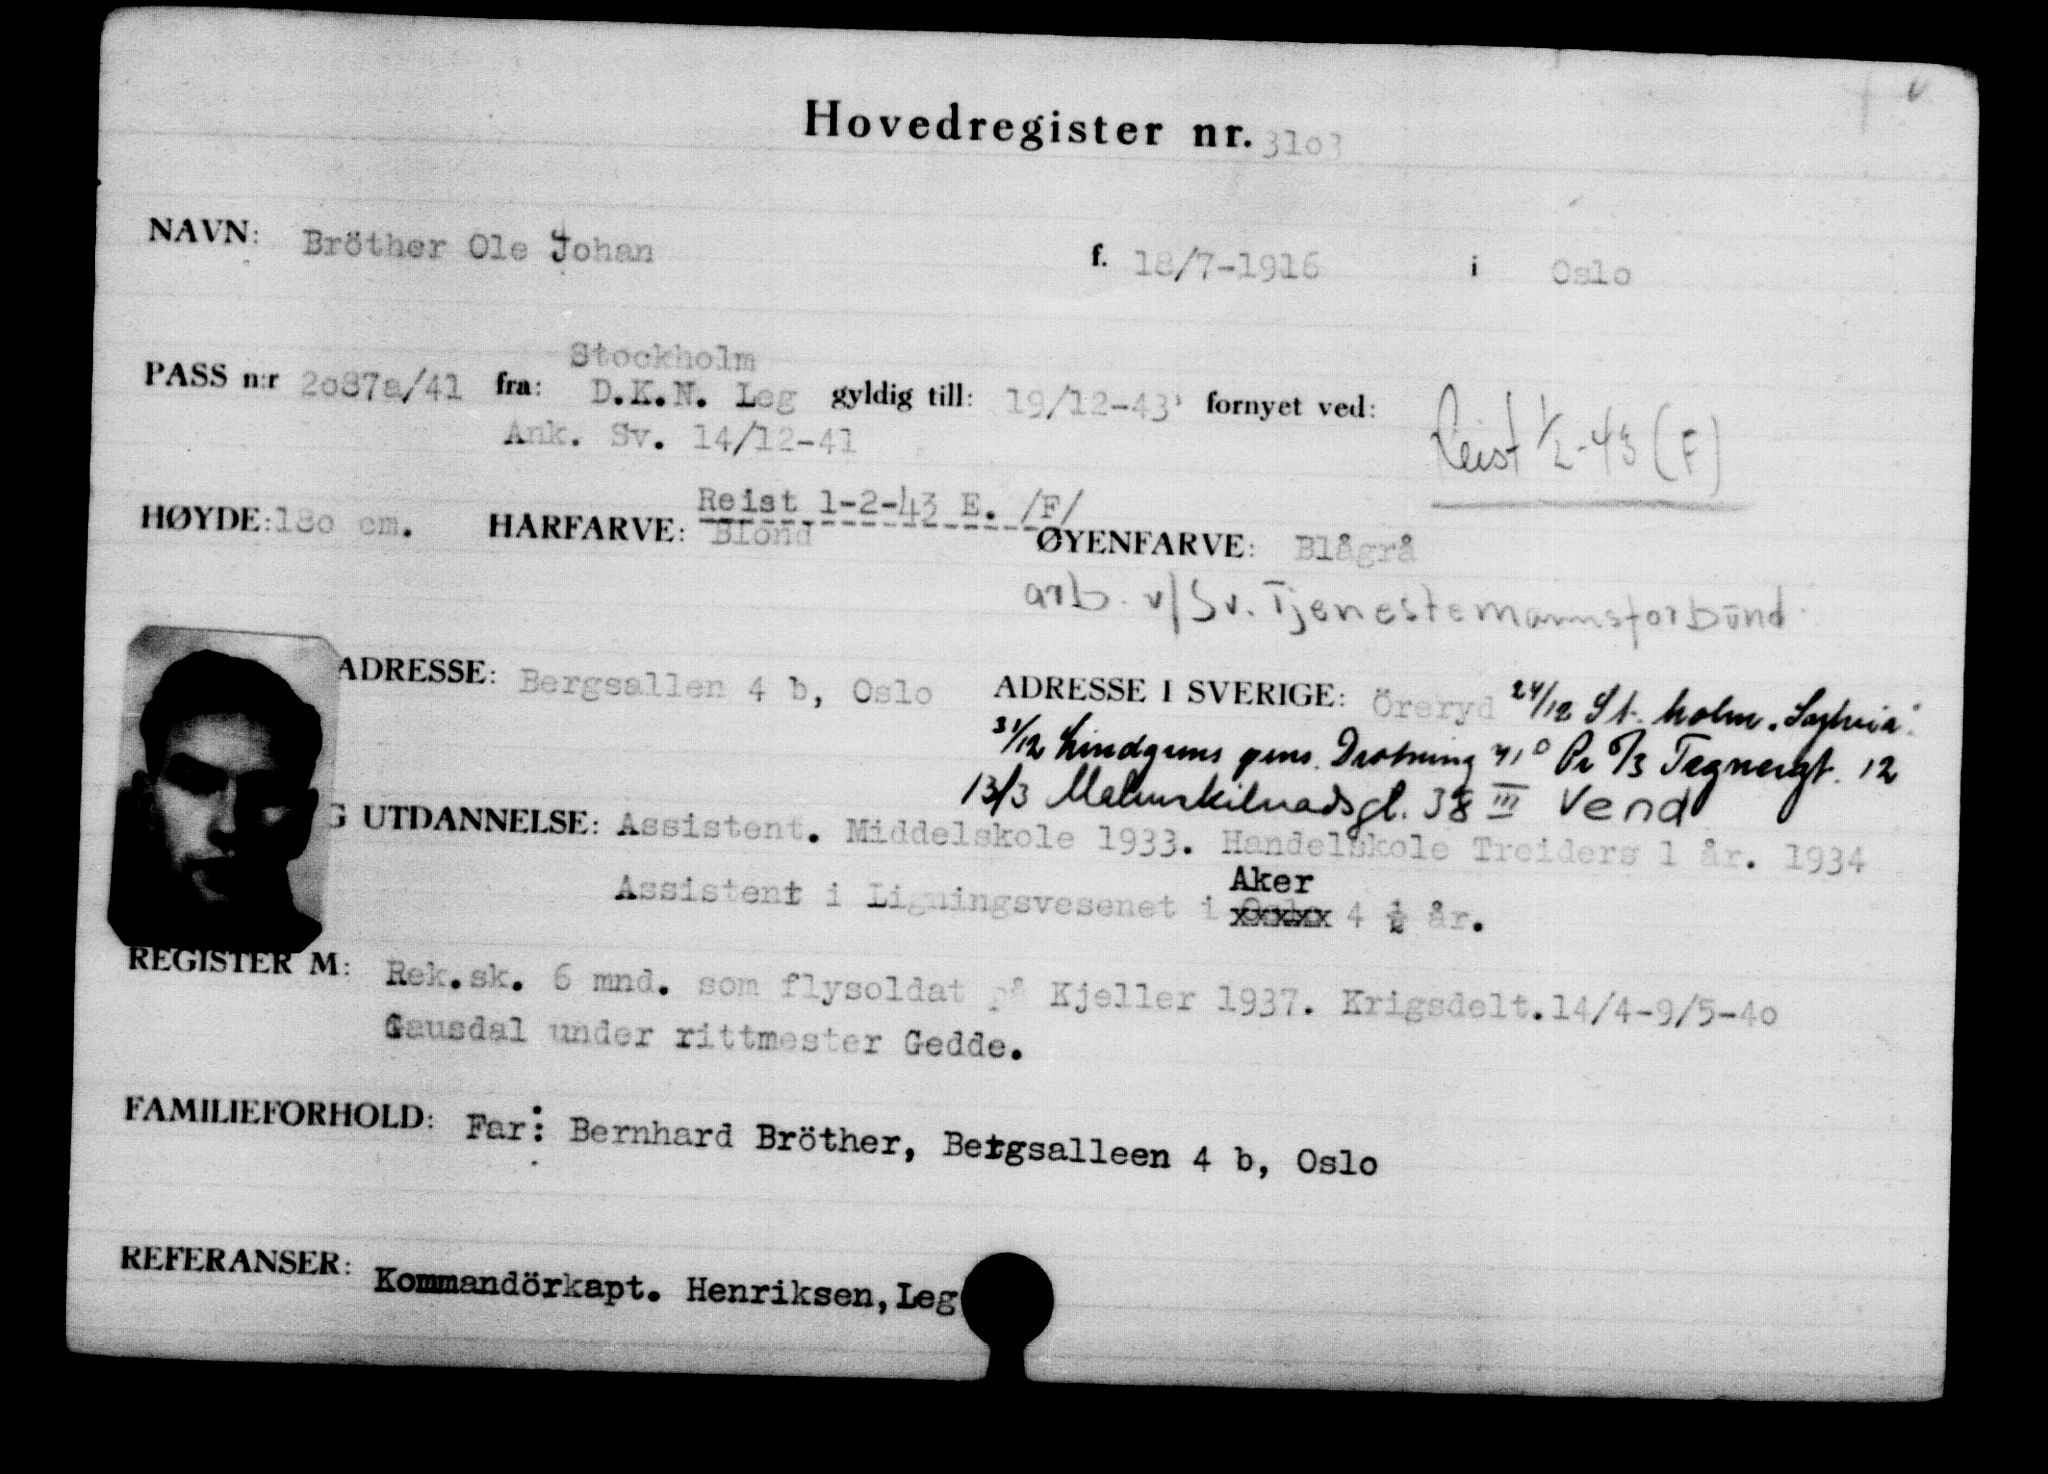 Hovedregister nr. 3103
NAVN: Bröther Ole Johan f. 18/7-1916 i Oslo
Stockholm
PASS n:r 2o87a/41 fra: D.K.N. Leg gyldig till: 19/12-43 fornyet ved:
Ank. Sv. 14/12-41
Reist 1/2-43 (F)
Reist 1-2-43 E. /F/
HØYDE: 18o cm. HÅRFARVE: Blond ØYENFARVE: Blågrå
arb. v/Sv. Tjenestemannsforbund
ADRESSE: Bergsallen 4 b, Oslo ADRESSE I SVERIGE: Öreryd 24/12 St. holm. "Sylvia".
31/12 Lindgrens pens. Drotning 71 Tegnergt. 12
13/3 Malmskilnadsgt. 38 III Vend
G UTDANNELSE: Assistent. Middelskole 1933. Handelskole Treiders 1 år. 1934
Aker
Assistent i Ligningsvesenet i Oslo 4 ½ år.
REGISTER M: Rek.sk. 6 mnd. som flysoldat på Kjeller 1937. Krigsdelt.14/4-9/5-4o
Gausdal under rittmester Gedde.
FAMILIEFORHOLD: Far: Bernhard Bröther, Bergsalleen 4 b, Oslo
REFERANSER: Kommandörkapt. Henriksen, Leg